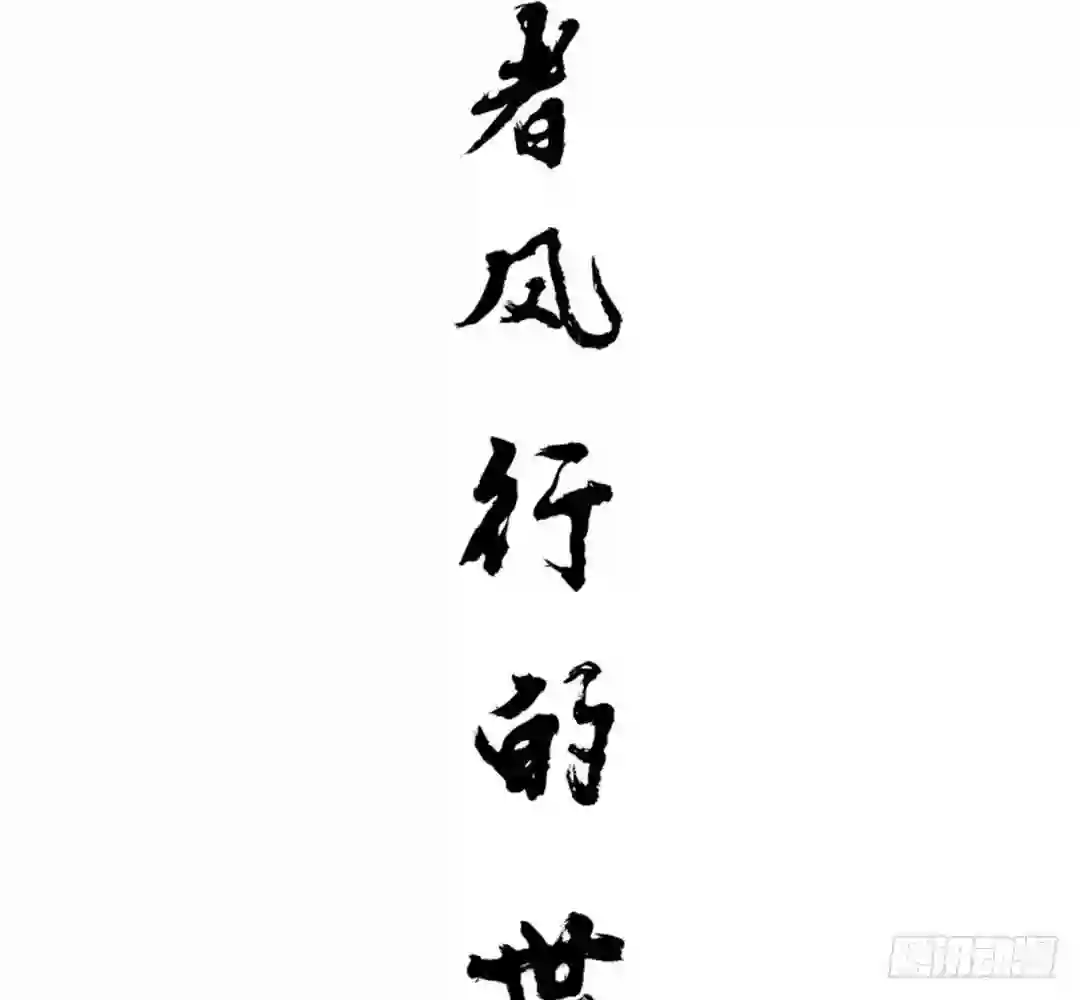 者风行的世
腾讯动漫